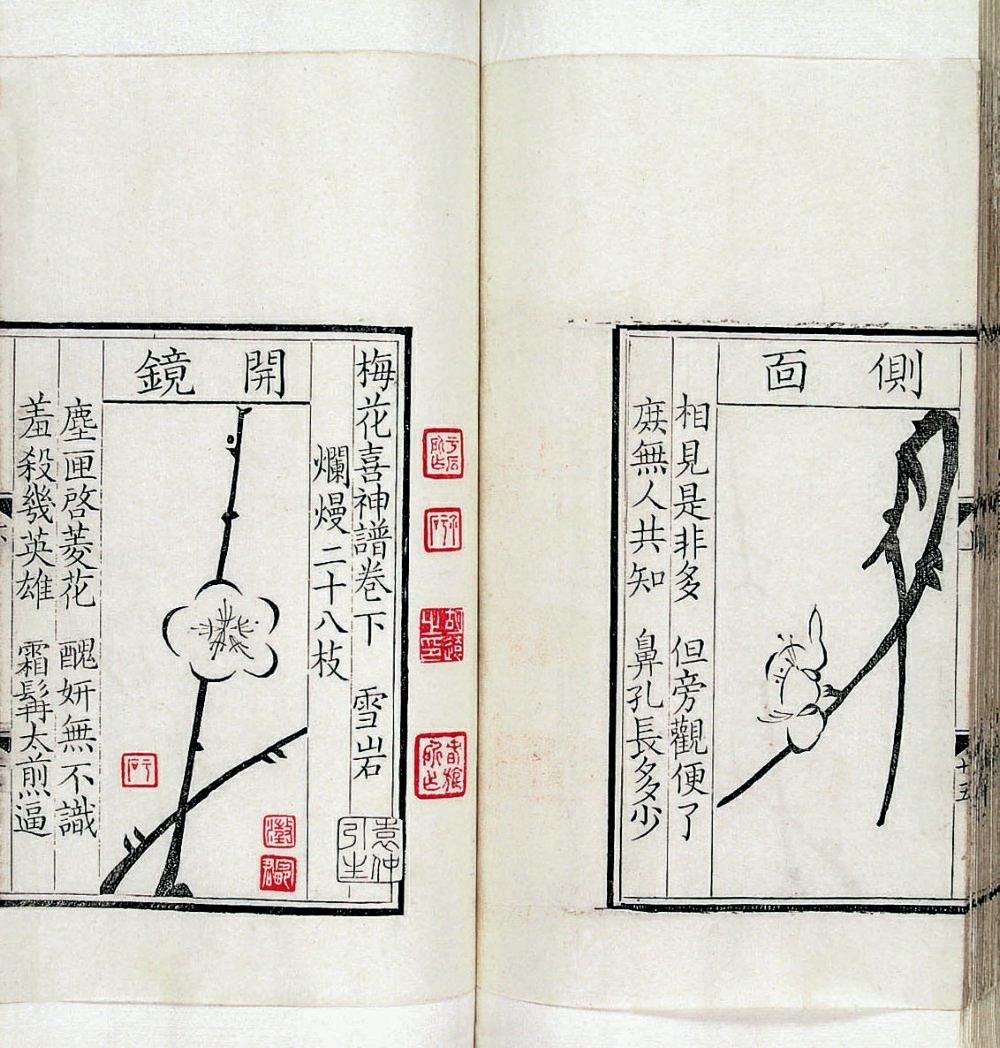 側面
相見是非多 但旁觀便了
庻無人共知 鼻孔長多少
梅花喜神譜卷下 雪岩
爛熳二十八枝
開鏡
塵匣啓菱花 醜妍無不識
羞殺幾英雄 霜髯太煎逼